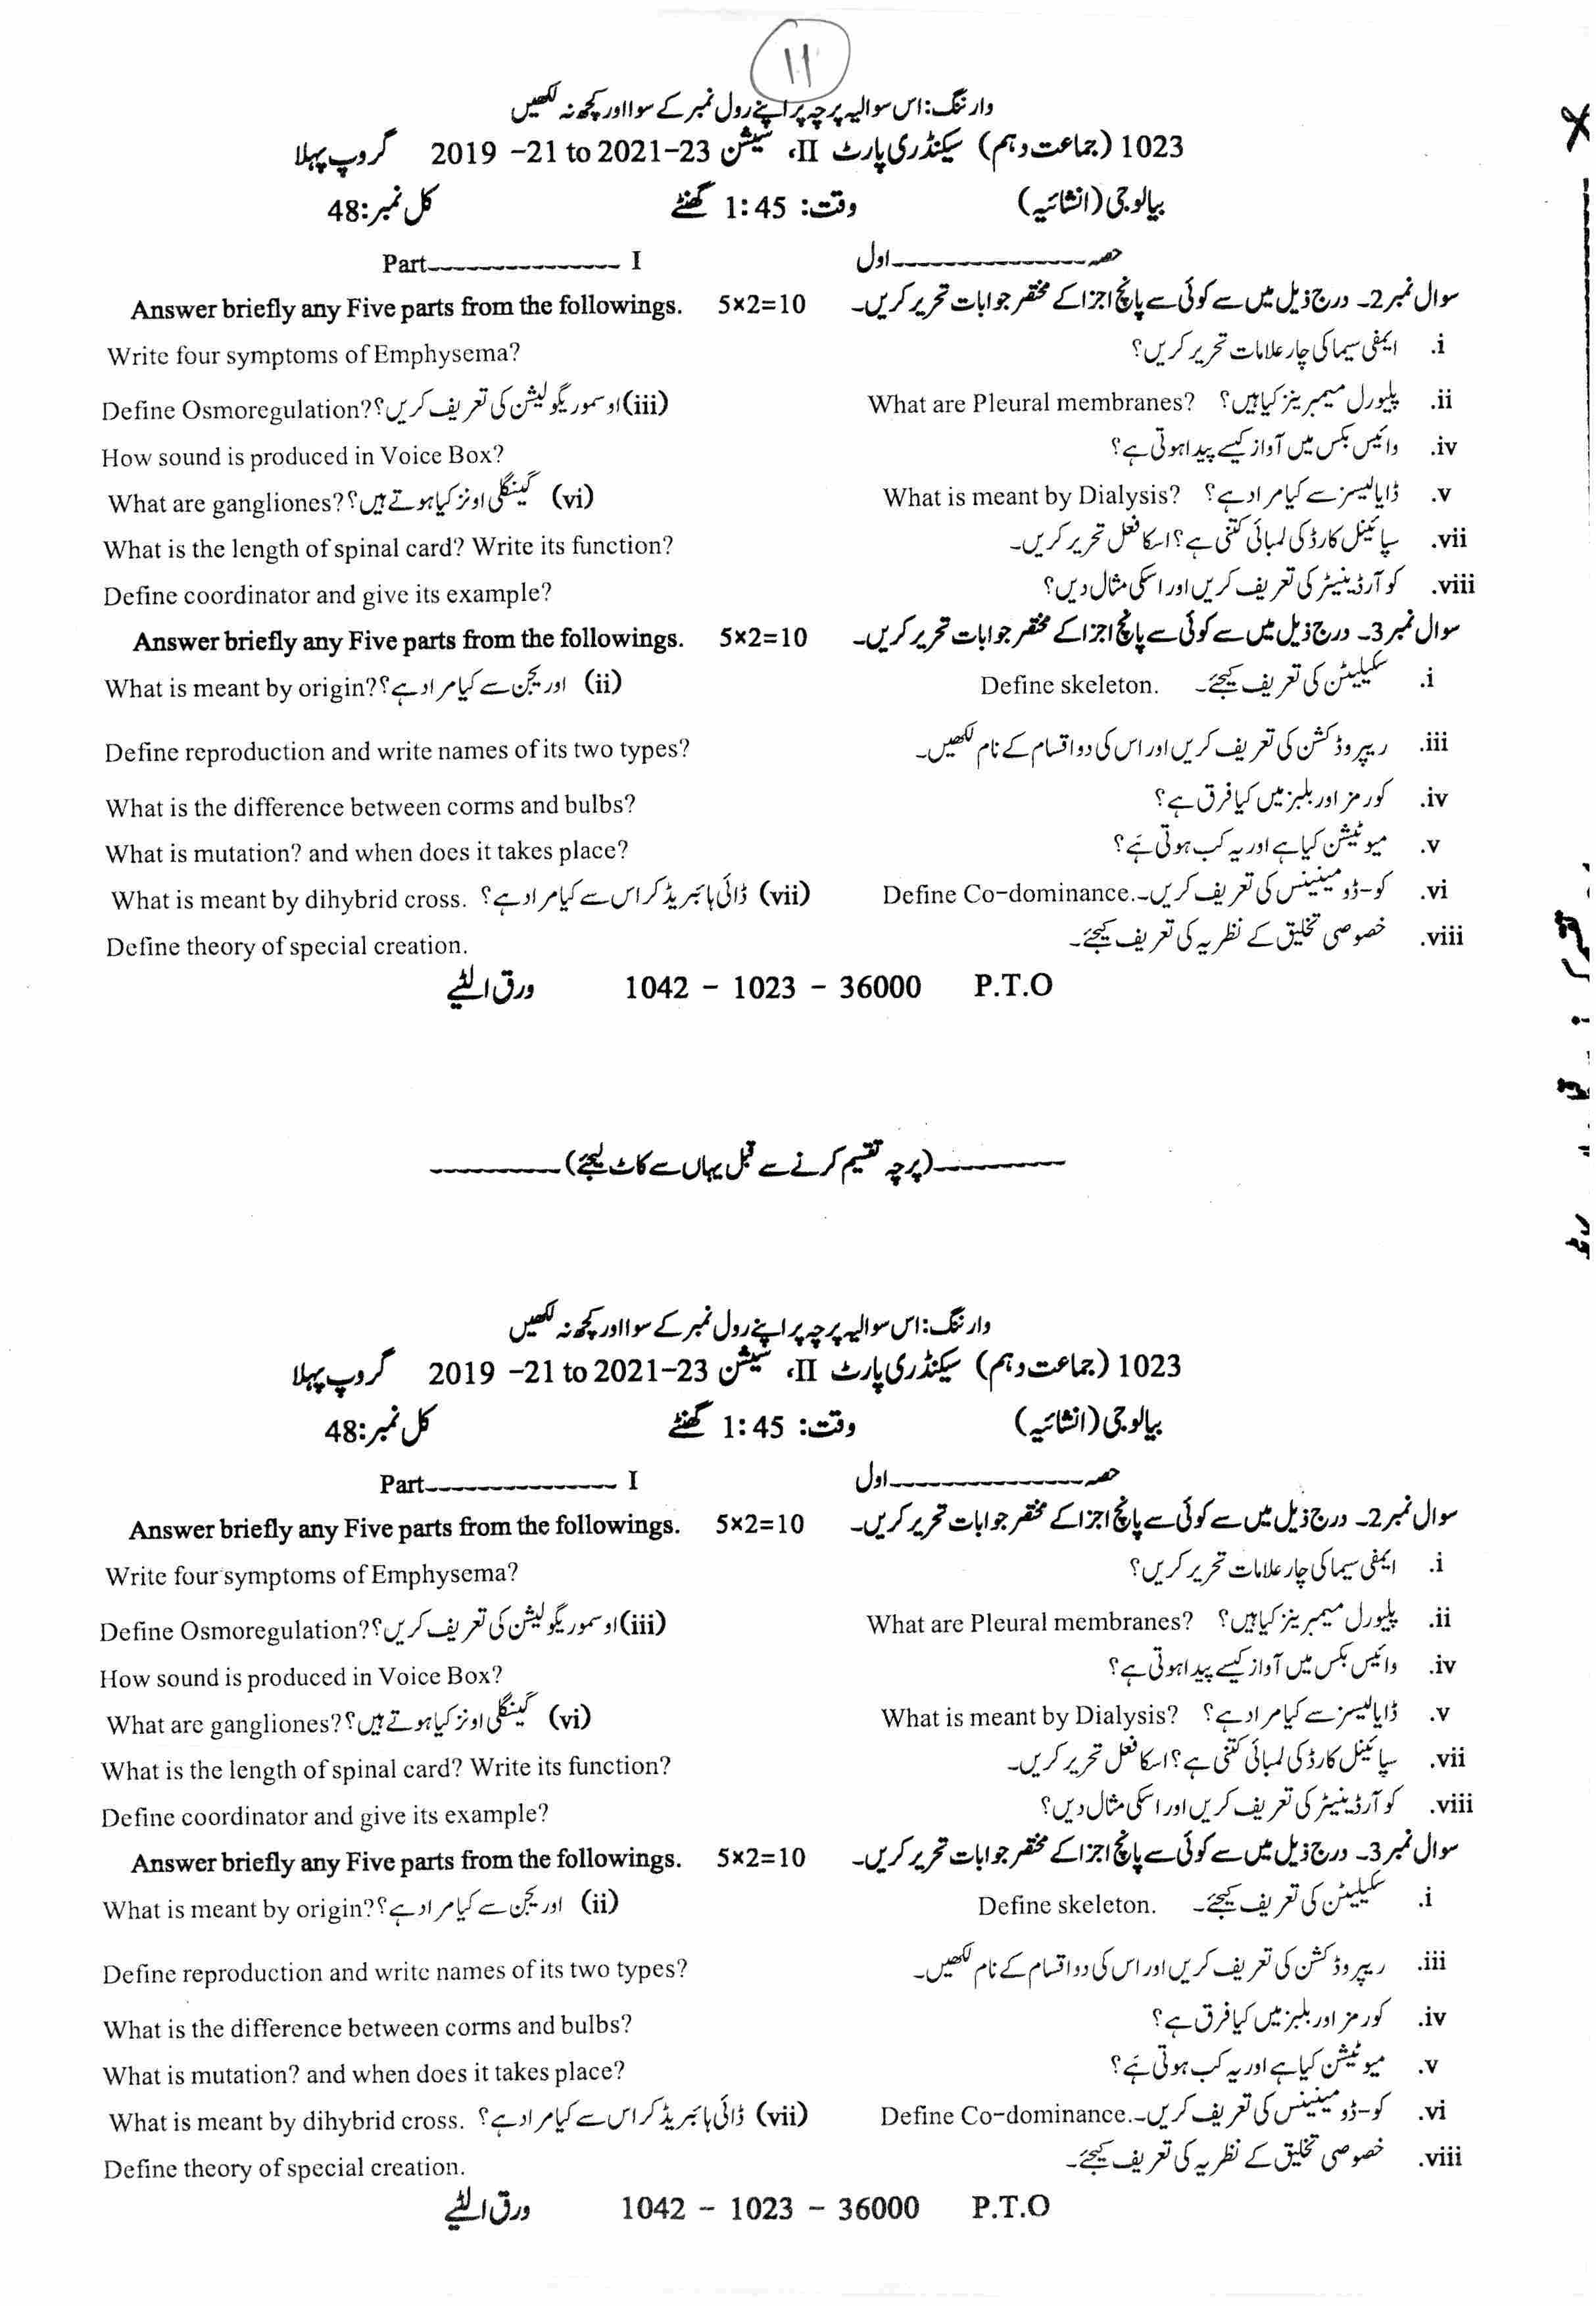 11
وارننگ: اس سوالیہ پرچہ پر اپنے رول نمبر کے سوا اور کچھ نہ لکھیں
1023 (جماعت دہم) سیکنڈری پارٹ II، سیشن 2019 -21 to 2021-23 گروپ پہلا
بیالوجی (انشائیہ) وقت: 1:45 گھنٹے کل نمبر: 48
حصہ---------------اول Part--------------- I
سوال نمبر 2۔ درج ذیل میں سے کوئی سے پانچ اجزا کے مختصر جوابات تحریر کریں۔ 5×2=10 Answer briefly any Five parts from the followings.
i. ایمفی سیما کی چار علامات تحریر کریں؟ Write four symptoms of Emphysema?
ii. پلیورل میمبرینز کیا ہیں؟ What are Pleural membranes? (iii) اوسموریگولیشن کی تعریف کریں؟ Define Osmoregulation?
iv. وائیس بکس میں آواز کیسے پیدا ہوتی ہے؟ How sound is produced in Voice Box?
v. ڈایالیسز سے کیا مراد ہے؟ What is meant by Dialysis? (vi) گینگلی اونز کیا ہوتے ہیں؟ What are gangliones?
vii. سپائینل کارڈ کی لمبائی کتنی ہے؟ اسکا فعل تحریر کریں۔ What is the length of spinal card? Write its function?
viii. کوآرڈینیٹر کی تعریف کریں اور اسکی مثال دیں؟ Define coordinator and give its example?
سوال نمبر 3۔ درج ذیل میں سے کوئی سے پانچ اجزا کے مختصر جوابات تحریر کریں۔ 5×2=10 Answer briefly any Five parts from the followings.
i. سکیلیٹن کی تعریف کیجئے۔ Define skeleton. (ii) اوریجن سے کیا مراد ہے؟ What is meant by origin?
iii. ریپروڈکشن کی تعریف کریں اور اس کی دو اقسام کے نام لکھیں۔ Define reproduction and write names of its two types?
iv. کورمز اور بلبز میں کیا فرق ہے؟ What is the difference between corms and bulbs?
v. میوٹیشن کیا ہے اور یہ کب ہوتی ہے؟ What is mutation? and when does it takes place?
vi. کو-ڈومینینس کی تعریف کریں۔ Define Co-dominance. (vii) ڈائی ہائبریڈ کراس سے کیا مراد ہے؟ What is meant by dihybrid cross.
viii. خصوصی تخلیق کے نظریہ کی تعریف کیجئے۔ Define theory of special creation.
ورق الٹیے 1042 - 1023 - 36000 P.T.O
----------(پرچہ تقسیم کرنے سے قبل یہاں سے کاٹ لیجئے)----------
وارننگ: اس سوالیہ پرچہ پر اپنے رول نمبر کے سوا اور کچھ نہ لکھیں
1023 (جماعت دہم) سیکنڈری پارٹ II، سیشن 2019 -21 to 2021-23 گروپ پہلا
بیالوجی (انشائیہ) وقت: 1:45 گھنٹے کل نمبر: 48
حصہ---------------اول Part--------------- I
سوال نمبر 2۔ درج ذیل میں سے کوئی سے پانچ اجزا کے مختصر جوابات تحریر کریں۔ 5×2=10 Answer briefly any Five parts from the followings.
i. ایمفی سیما کی چار علامات تحریر کریں؟ Write four symptoms of Emphysema?
ii. پلیورل میمبرینز کیا ہیں؟ What are Pleural membranes? (iii) اوسموریگولیشن کی تعریف کریں؟ Define Osmoregulation?
iv. وائیس بکس میں آواز کیسے پیدا ہوتی ہے؟ How sound is produced in Voice Box?
v. ڈایالیسز سے کیا مراد ہے؟ What is meant by Dialysis? (vi) گینگلی اونز کیا ہوتے ہیں؟ What are gangliones?
vii. سپائینل کارڈ کی لمبائی کتنی ہے؟ اسکا فعل تحریر کریں۔ What is the length of spinal card? Write its function?
viii. کوآرڈینیٹر کی تعریف کریں اور اسکی مثال دیں؟ Define coordinator and give its example?
سوال نمبر 3۔ درج ذیل میں سے کوئی سے پانچ اجزا کے مختصر جوابات تحریر کریں۔ 5×2=10 Answer briefly any Five parts from the followings.
i. سکیلیٹن کی تعریف کیجئے۔ Define skeleton. (ii) اوریجن سے کیا مراد ہے؟ What is meant by origin?
iii. ریپروڈکشن کی تعریف کریں اور اس کی دو اقسام کے نام لکھیں۔ Define reproduction and write names of its two types?
iv. کورمز اور بلبز میں کیا فرق ہے؟ What is the difference between corms and bulbs?
v. میوٹیشن کیا ہے اور یہ کب ہوتی ہے؟ What is mutation? and when does it takes place?
vi. کو-ڈومینینس کی تعریف کریں۔ Define Co-dominance. (vii) ڈائی ہائبریڈ کراس سے کیا مراد ہے؟ What is meant by dihybrid cross.
viii. خصوصی تخلیق کے نظریہ کی تعریف کیجئے۔ Define theory of special creation.
ورق الٹیے 1042 - 1023 - 36000 P.T.O